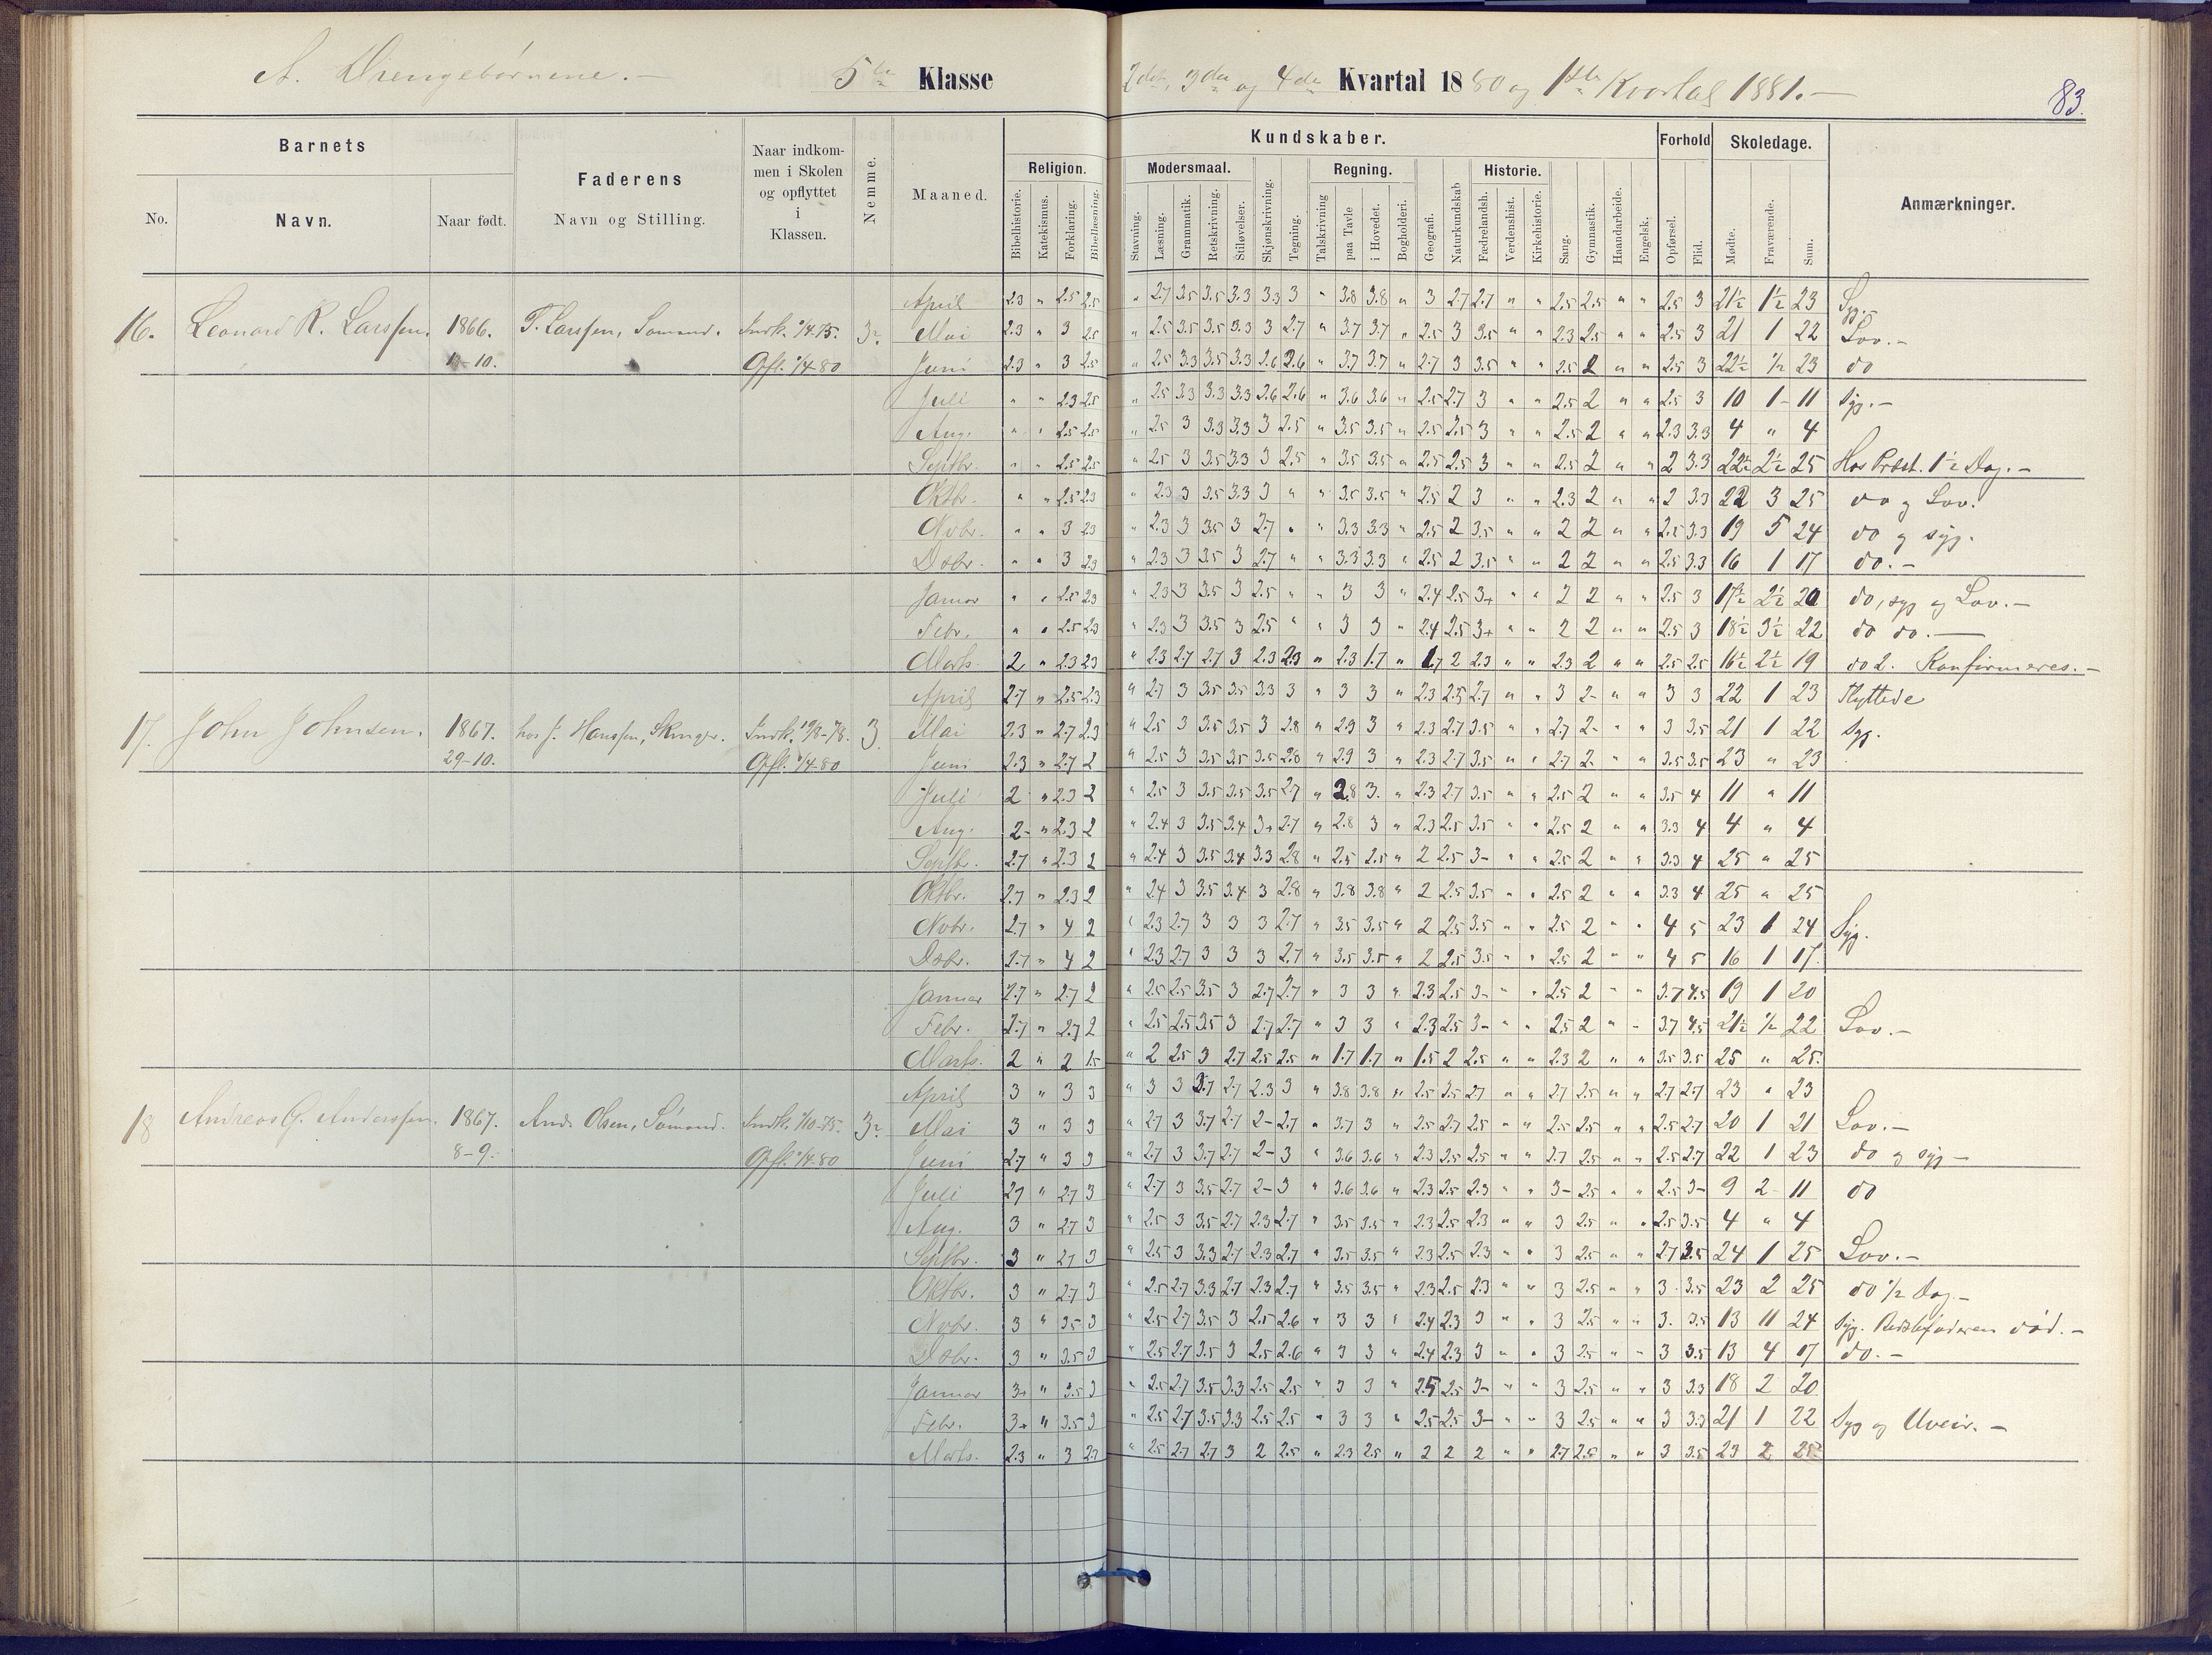 A. Drengebørnene. —
5te Klasse
2det, 3die og 4de Kvartal 1880 og 1ste Kvartal 1881. —
83.
Barnets
No.
Navn.
Naar født.
Faderens
Navn og Stilling.
Naar indkom-
men i Skolen
og opflyttet
i
Klassen.
Nemme.
Maaned.
Kundskaber.
Religion.
Bibelhistorie.
Katekismus.
Forklaring.
Bibellæsning.
Modersmaal.
Stavning.
Læsning.
Grammatik.
Retskrivning.
Stiløvelser.
Skjønskrivning.
Tegning.
Regning.
Talskrivning
paa Tavle
i Hovedet.
Bogholderi.
Geografi.
Naturkundskab
Historie.
Fædrelandsh.
Verdenshist.
Kirkehistorie.
Sang.
Gymnastik.
Haandarbeide.
Engelsk.
Forhold
Opførsel.
Flid.
Skoledage.
Mødte.
Fraværende.
Sum.
Anmærkninger.
April 2.3 " 2.5 2.5 " 2.7 3.5 3.5 3.3 3.3 3 " 3.8 3.8 " 3 2.7 2.7 " " 2.5 2.5 " " 2.5 3 21½ 1½ 23 Syg.-
16. Leonard R. Larssen. 1866. T. Larssen, Sømand. Indk. 1/4-75. 3- Mai 2.3 " 3 2.5 " 2.5 3.5 3.5 3.3 3 2.7 " 3.7 3.7 " 2.5 3 3.5 " " 2.3 2.5 " " 2.5 3 21 1 22 Lov.-
Opfl. 1/4-80 Juni 2.3 " 3 2.5 " 2.5 3.3 3.5 3.3 2.6 2.6 " 3.7 3.7 " 2.7 3 3.5 " " 2.5 2 " " 2.5 3 22½ ½ 23 do
Juli " " 2.3 2.5 " 2.5 3.3 3.3 3.3 2.6 2.6 " 3.6 3.6 " 2.5 2.7 3 " " 2.5 2 " " 2.5 3 10 1 11 Syg.-
Aug. " " 2.5 2.5 " 2.5 3 3.3 3.3 3 2.5 " 3.5 3.5 " 2.5 2.5 3 " " 2.5 2 " " 2.3 3.3 4 " 4
Septbr. " " 2.5 2.5 " 2.5 3 3.5 3.3 3 2.5 " 3.5 3.5 " 2.5 2.5 3 " " 2.5 2 " " 2 3.3 22½ 2½ 25 Hos Præst. 1½ Dag.-
Oktbr. " " 2.5 2.3 " 2.3 3 3.5 3.3 3 " " 3.5 3.5 " 2.5 2 3 " " 2.3 2 " " 2 3.3 22 3 25 do og Lov.
Novbr. " " 3 2.3 " 2.3 3 3.5 3 2.7 " " 3.3 3.3 " 2.5 2 3.5 " " 2 2 " " 2.5 3.3 19 5 24 do og syg.
Dsbr. " " 3 2.3 " 2.3 3 3.5 3 2.7 " " 3.3 3.3 " 2.5 2 3.5 " " 2 2 " " 2.5 3.3 16 1 17 do.-
Januar " " 2.5 2.3 " 2.3 3 3.5 3 2.5 " " 3 3 " 2.4 2.5 3+ " " 2 2 " " 2.5 3 17½ 2½ 20 do, syg og Lov.-
Febr. " " 2.5 2.3 " 2.3 3 3.5 3 2.5 " " 3 3 " 2.4 2.5 3+ " " 2 2 " " 2.5 3 18½ 3½ 22 do do.-
Marts. 2 " 2.3 2.3 " 2.3 2.7 2.7 3 2.3 2.3 " 2.3 1.7 " 1.7 2 2.3 " " 2.3 2 " " 2.5 2.5 16½ 2½ 19 do 2. Konfirmeres.-
April 2.7 " 2.5 2.3 " 2.7 3 3.5 3.5 3.3 3 " 3 3 " 2.3 2.5 2.7 " " 3 2- " " 3 3 22 1 23 Flyttede
17. John Johnsen. 1867. hos J. Hanssen, Indk. 19/8-78. 3 Mai 2.3 " 2.7 2.3 " 2.5 3 3.5 3.5 3 2.8 " 2.9 3 " 2.3 2.7 3.5 " " 2.7 2- " " 3 3.5 21 1 22 Syg.
29-10. Opfl. 1/4-80 Juni 2.3 " 2.7 2 " 2.5 3 3.5 3.5 3.5 2.8 " 2.9 3 " 2.3 2.7 3.5 " " 2.7 2 " " 3.5 3.5 23 " 23
Juli 2 " 2.3 2 " 2.5 3 3.5 3.5 3.5 2.7 " 2.8 3. " 2.3 2.7 3.5 " " 2.5 2 " " 3.5 4 11 " 11
Aug. 2- " 2.3 2 " 2.4 3 3.5 3.4 3+ 2.7 " 2.8 3 " 2.3 2.5 3.5 " " 2.5 2 " " 3.3 4 4 " 4
Septbr. 2.7 " 2.3 2 " 2.4 3 3.5 3.4 3.3 2.8 " 2.5 2.5 " 2 2.5 3- " " 2.5 2 " " 3.3 4 25 " 25
Oktbr. 2.7 " 2.3 2 " 2.4 3 3.5 3.4 3 2.8 " 3.8 3.8 " 2 2.5 3.5 " " 2.5 2 " " 3.3 4 25 " 25
Novbr. 2.7 " 4 2 " 2.3 2.7 3 3 3 2.7 " 3.5 3.5 " 2 2.5 3.5 " " 2.5 2 " " 4 5 23 1 24 Syg.
Dsbr. 2.7 " 4 2 " 2.3 2.7 3 3 3 2.7 " 3.5 3.5 " 2 2.5 3.5 " " 2.5 2 " " 4 5 16 1 17.
Januar 2.7 " 2.7 2 " 2.5 2.5 3.5 3 2.7 2.7 " 3 3 " 2.3 2.5 3- " " 2.5 2 " " 3.7 4.5 19 1 20
Febr. 2.7 " 2.7 2 " 2.5 2.5 3.5 3 2.7 2.7 " 3 3 " 2.3 2.5 3- " " 2.5 2 " " 3.7 4.5 21½ ½ 22 Lov.-
Marts. 2 " 2 1.5 " 2 2.5 3 2.7 2.5 2.5 " 1.7 1.7 " 1.5 2 2.5 " " 2.3 2 " " 3.5 3.5 25 " 25.
April 3 " 3 3 " 3 3 3.7 2.7 2.3 3 " 3.8 3.8 " 2.5 2.5 2.7 " " 2.7 2.5 " " 2.7 2.7 23 " 23
18 Andreas G. Anderssen. 1867. And. Olsen, Sømand. Indk. 1/10-75. 3- Mai 3 " 3 3 " 2.7 3 3.7 2.7 2- 2.7 " 3.7 3 " 2.5 2.7 2.5 " " 2.5 2.5 " " 2.5 2.7 20 1 21 Lov.-
8-9. Opfl. 1/4-80 Juni 2.7 " 3 3 " 2.7 3 3.7 2.7 2- 3 " 3.6 3.6 " 2.3 2.5 2.5 " " 2.7 2.5 " " 2.5 2.7 22 1 23 do og syg-
Juli 2.7 " 2.7 3 " 2.7 3 3.5 2.7 2- 3 " 3.6 3.6 " 2.3 2.5 2.3 " " 3- 2.5 " " 2.5 3- 9 2 11 do
Aug. 3 " 2.7 3 " 2.5 3 3.5 2.7 2.3 2.7 " 3.5 3.5 " 2.3 2.5 2.3 " " 3 2.5 " " 2.5 3.5 4 " 4
Septbr. 3 " 2.7 3 " 2.5 3 3.3 2.7 2.3 2.7 " 3.5 3.5 " 2.3 2.5 2.3 " " 3 2.5 " " 2.7 3.5 24 1 25 Lov.-
Oktbr. 3 " 2.7 3 " 2.5 2.7 3.3 2.7 2.3 2.7 " 3.5 3.5 " 2.3 2.5 2.3 " " 3 2.5 " " 3 3.5 23 2 25 do ½ Dag-
Novbr. 3 " 3.5 3 " 2.5 2.7 3.5 3 2.5 2.6 " 3 3 " 2.4 2.3 3 " " 3 2.5 " " 3. 3.5 13 11 24 Syg. Bedstefaderen død.-
Dsbr. 3 " 3.5 3 " 2.5 2.7 3.5 3 2.5 2.6 " 3 3 " 2.4 2.3 3 " " 3 2.5 " " 3 3.5 13 4 17 do.-
Januar 3+ " 3.5 3 " 2.5 2.7 3.5 3.3 2.5 2.5 " 3 3 " 2.5 2.5 3- " " 3 2.5 " " 3 3.3 18 2 20
Febr. 3+ " 3.5 3 " 2.5 2.7 3.5 3.3 2.5 2.5 " 3 3 " 2.5 2.5 3- " " 3 2.5 " " 3 3.3 21 1 22 Syg og Uveir.-
Marts. 2.3 " 3 2.7 " 2.5 2.7 2.7 3 2 2.5 " 2.3 2.5 " 2 2 2 " " 2.7 2.5 " " 3 3.5 23 2 25